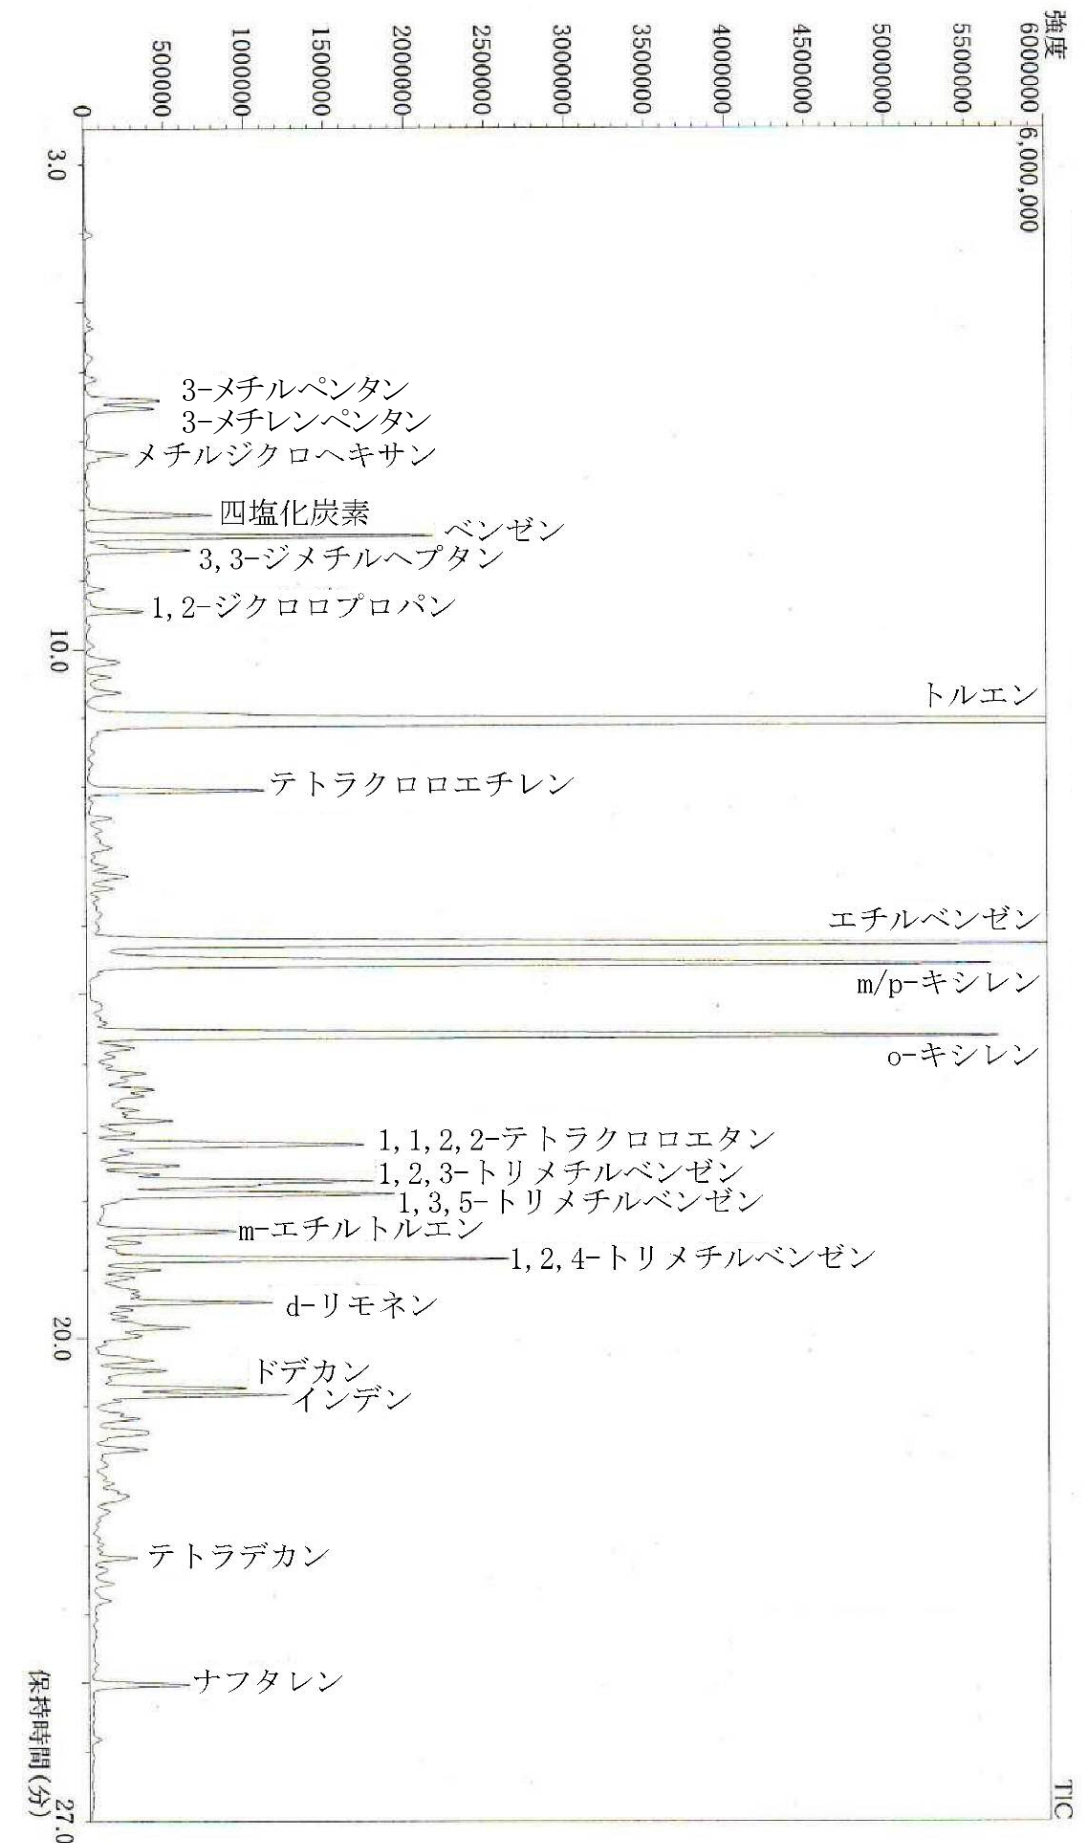 強度
6000000
5500000
5000000
4500000
4000000
3500000
3000000
2500000
2000000
1500000
1000000
500000
0
6,000,000
TIC
3.0
10.0
20.0
27.0
保持時間(分)
3-メチルペンタン
3-メチレンペンタン
メチルジクロヘキサン
四塩化炭素
ベンゼン
3,3-ジメチルヘプタン
1,2-ジクロロプロパン
トルエン
テトラクロロエチレン
エチルベンゼン
m/p-キシレン
o-キシレン
1,1,2,2-テトラクロロエタン
1,2,3-トリメチルベンゼン
1,3,5-トリメチルベンゼン
m-エチルトルエン
1,2,4-トリメチルベンゼン
d-リモネン
ドデカン
インデン
テトラデカン
ナフタレン